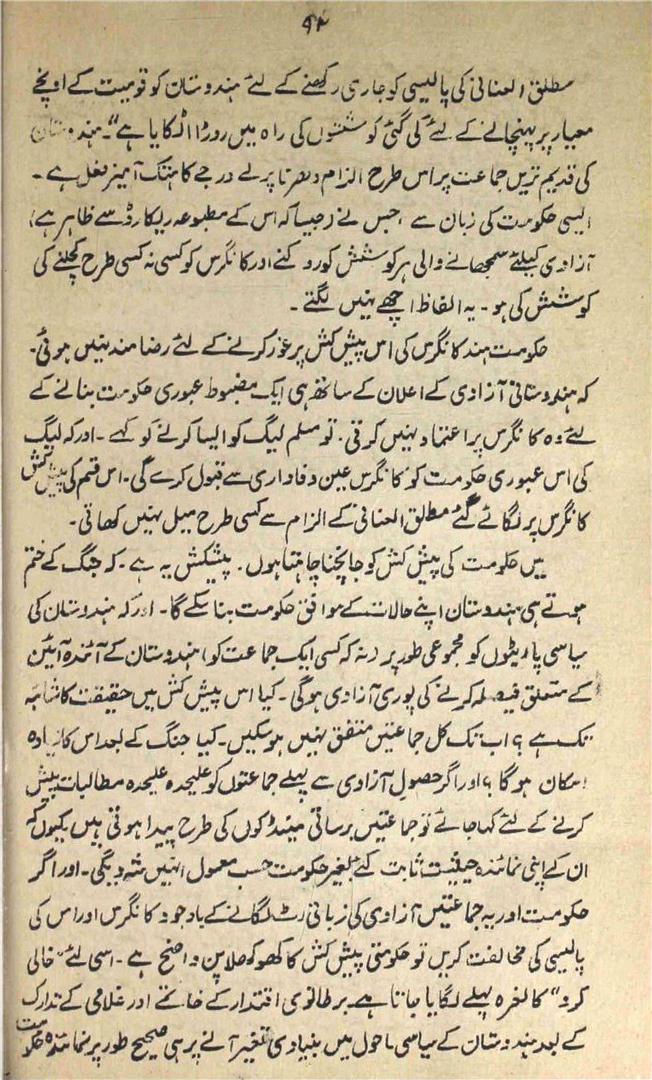 ۹۲
مطلق العنانی کی پالیسی کو جاری رکھنے کے لئے ہندوستان کو قومیت کے اونچے
معیار پر پہنچانے کے لئے کی گئی کوششوں کی راہ میں روڑا اٹکایا ہے"۔ ہندوستان
کی قدیم ترین جماعت پر اس طرح الزام دھرنا پرلے درجے کا ہتک آمیز فعل ہے۔
ایسی حکومت کی زبان سے، جس نے (جیسا کہ اس کے مطبوعہ ریکارڈ سے ظاہر ہے)
آزادی کیلئے سمجھانے والی ہر کوشش کو روکنے اور کانگرس کو کسی نہ کسی طرح کچلنے کی
کوشش کی ہو۔ یہ الفاظ اچھے نہیں لگتے۔
حکومت ہند کانگرس کی اس پیش کش پر غور کرنے کے لئے رضامند نہیں ہوئی۔
کہ ہندوستانی آزادی کے اعلان کے ساتھ ہی ایک مضبوط عبوری حکومت بنانے کے
لئے وہ کانگرس پر اعتماد نہیں کرتی۔ تو مسلم لیگ کو ایسا کرنے کو کہے۔ اور کہ لیگ
کی اس عبوری حکومت کو کانگرس عین وفاداری سے قبول کرے گی۔ اس قسم کی پیش کش
کانگرس پر لگائے گئے مطلق العنانی کے الزام سے کسی طرح میل نہیں کھاتی۔
میں حکومت کی پیش کش کو جانچنا چاہتا ہوں۔ پیشکش یہ ہے۔ کہ جنگ کے ختم
ہوتے ہی ہندوستان اپنے حالات کے موافق حکومت بنا سکے گا۔ اور کہ ہندوستان کی
سیاسی پارٹیوں کو مجموعی طور پر (نہ کہ کسی ایک جماعت کو) ہندوستان کے آئندہ آئین
کے متعلق فیصلہ کرنے کی پوری آزادی ہوگی۔ کیا اس پیش کش میں حقیقت کا شائبہ
تک ہے؟ اب تک کل جماعتیں متفق نہیں ہوسکیں۔ کیا جنگ کے بعد اس کا زیادہ
امکان ہوگا؟ اور اگر حصول آزادی سے پہلے جماعتوں کو علیحدہ علیحدہ مطالبات پیش
کرنے کے لئے کہا جائے تو جماعتیں برساتی مینڈکوں کی طرح پیدا ہوتی ہیں کیوں کہ
ان کے اپنی نمائندہ حیثیت ثابت کئے بغیر حکومت حسب معمول انہیں شہ دیگی۔ اور اگر
حکومت اور یہ جماعتیں آزادی کی زبانی رٹ لگانے کے باوجود کانگرس اور اس کی
پالیسی کی مخالفت کریں تو حکومتی پیش کش کا کھوکھلا پن واضح ہے۔ اسی لئے "خالی
کرو" کا نعرہ پہلے لگایا جاتا ہے۔ برطانوی اقتدار کے خاتمے اور غلامی کے تدارک
کے بعد ہندوستان کے سیاسی ماحول میں بنیادی تغیر آنے پر ہی صحیح طور پر نمائندہ حکومت